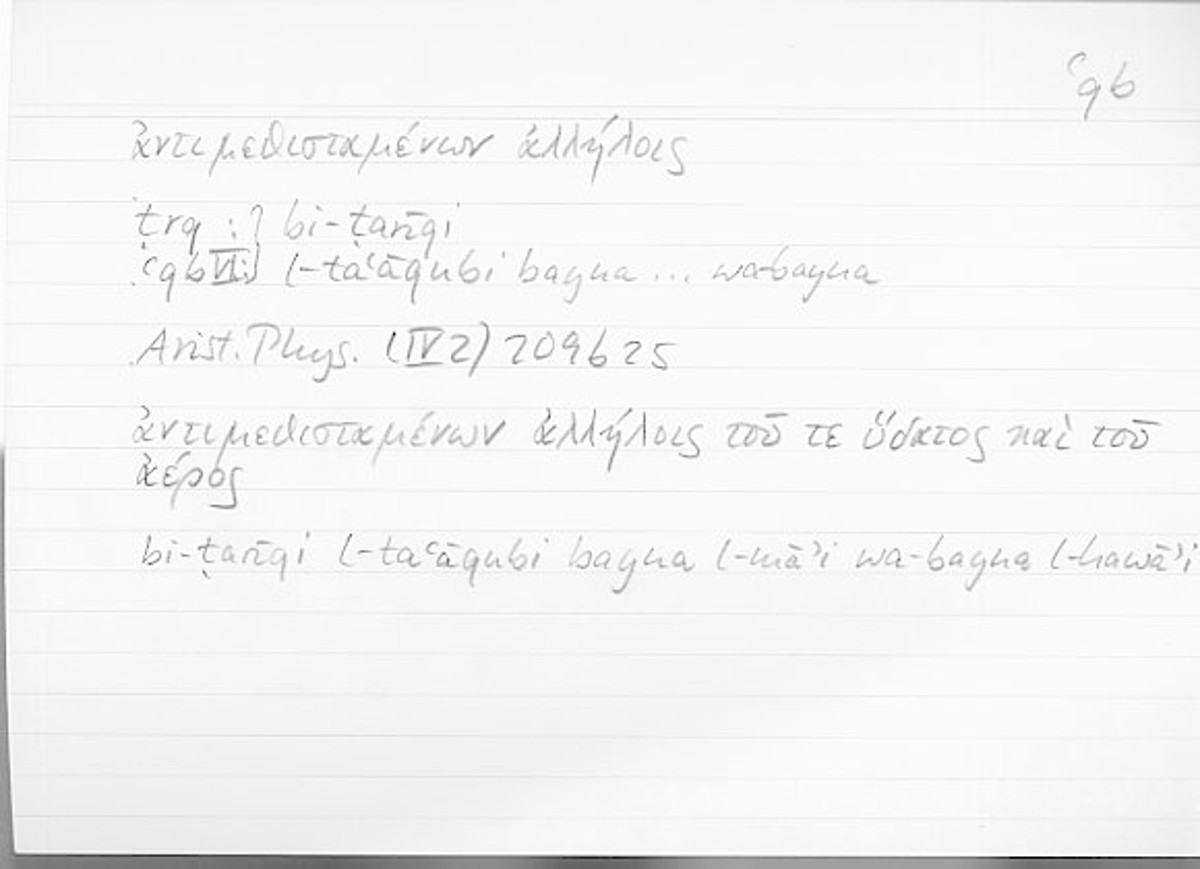 ʿqb
ἀντιμεθισταμένων ἀλλήλοις
ṭrq : bi-ṭarīqi
ʿqb VI: l-taʿāqubi bayna ... wa-bayna
Arist. Phys. (IV 2) 209b25
ἀντιμεθισταμένων ἀλλήλοις τοῦ τε ὕδατος καὶ τοῦ
ἀέρος
bi-ṭarīqi l-taʿāqubi bayna l-māʾi wa-bayna l-hawāʾi